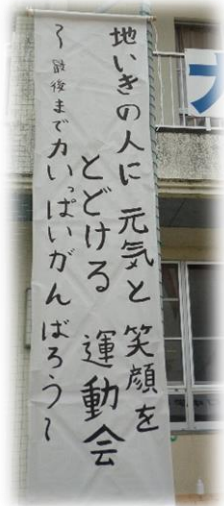 地いきの人に 元気と 笑顔を
とどける 運動会
〜最後まで力いっぱいがんばろう〜